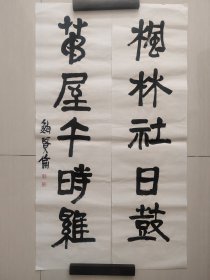 楓林社日鼓
茅屋午時雞